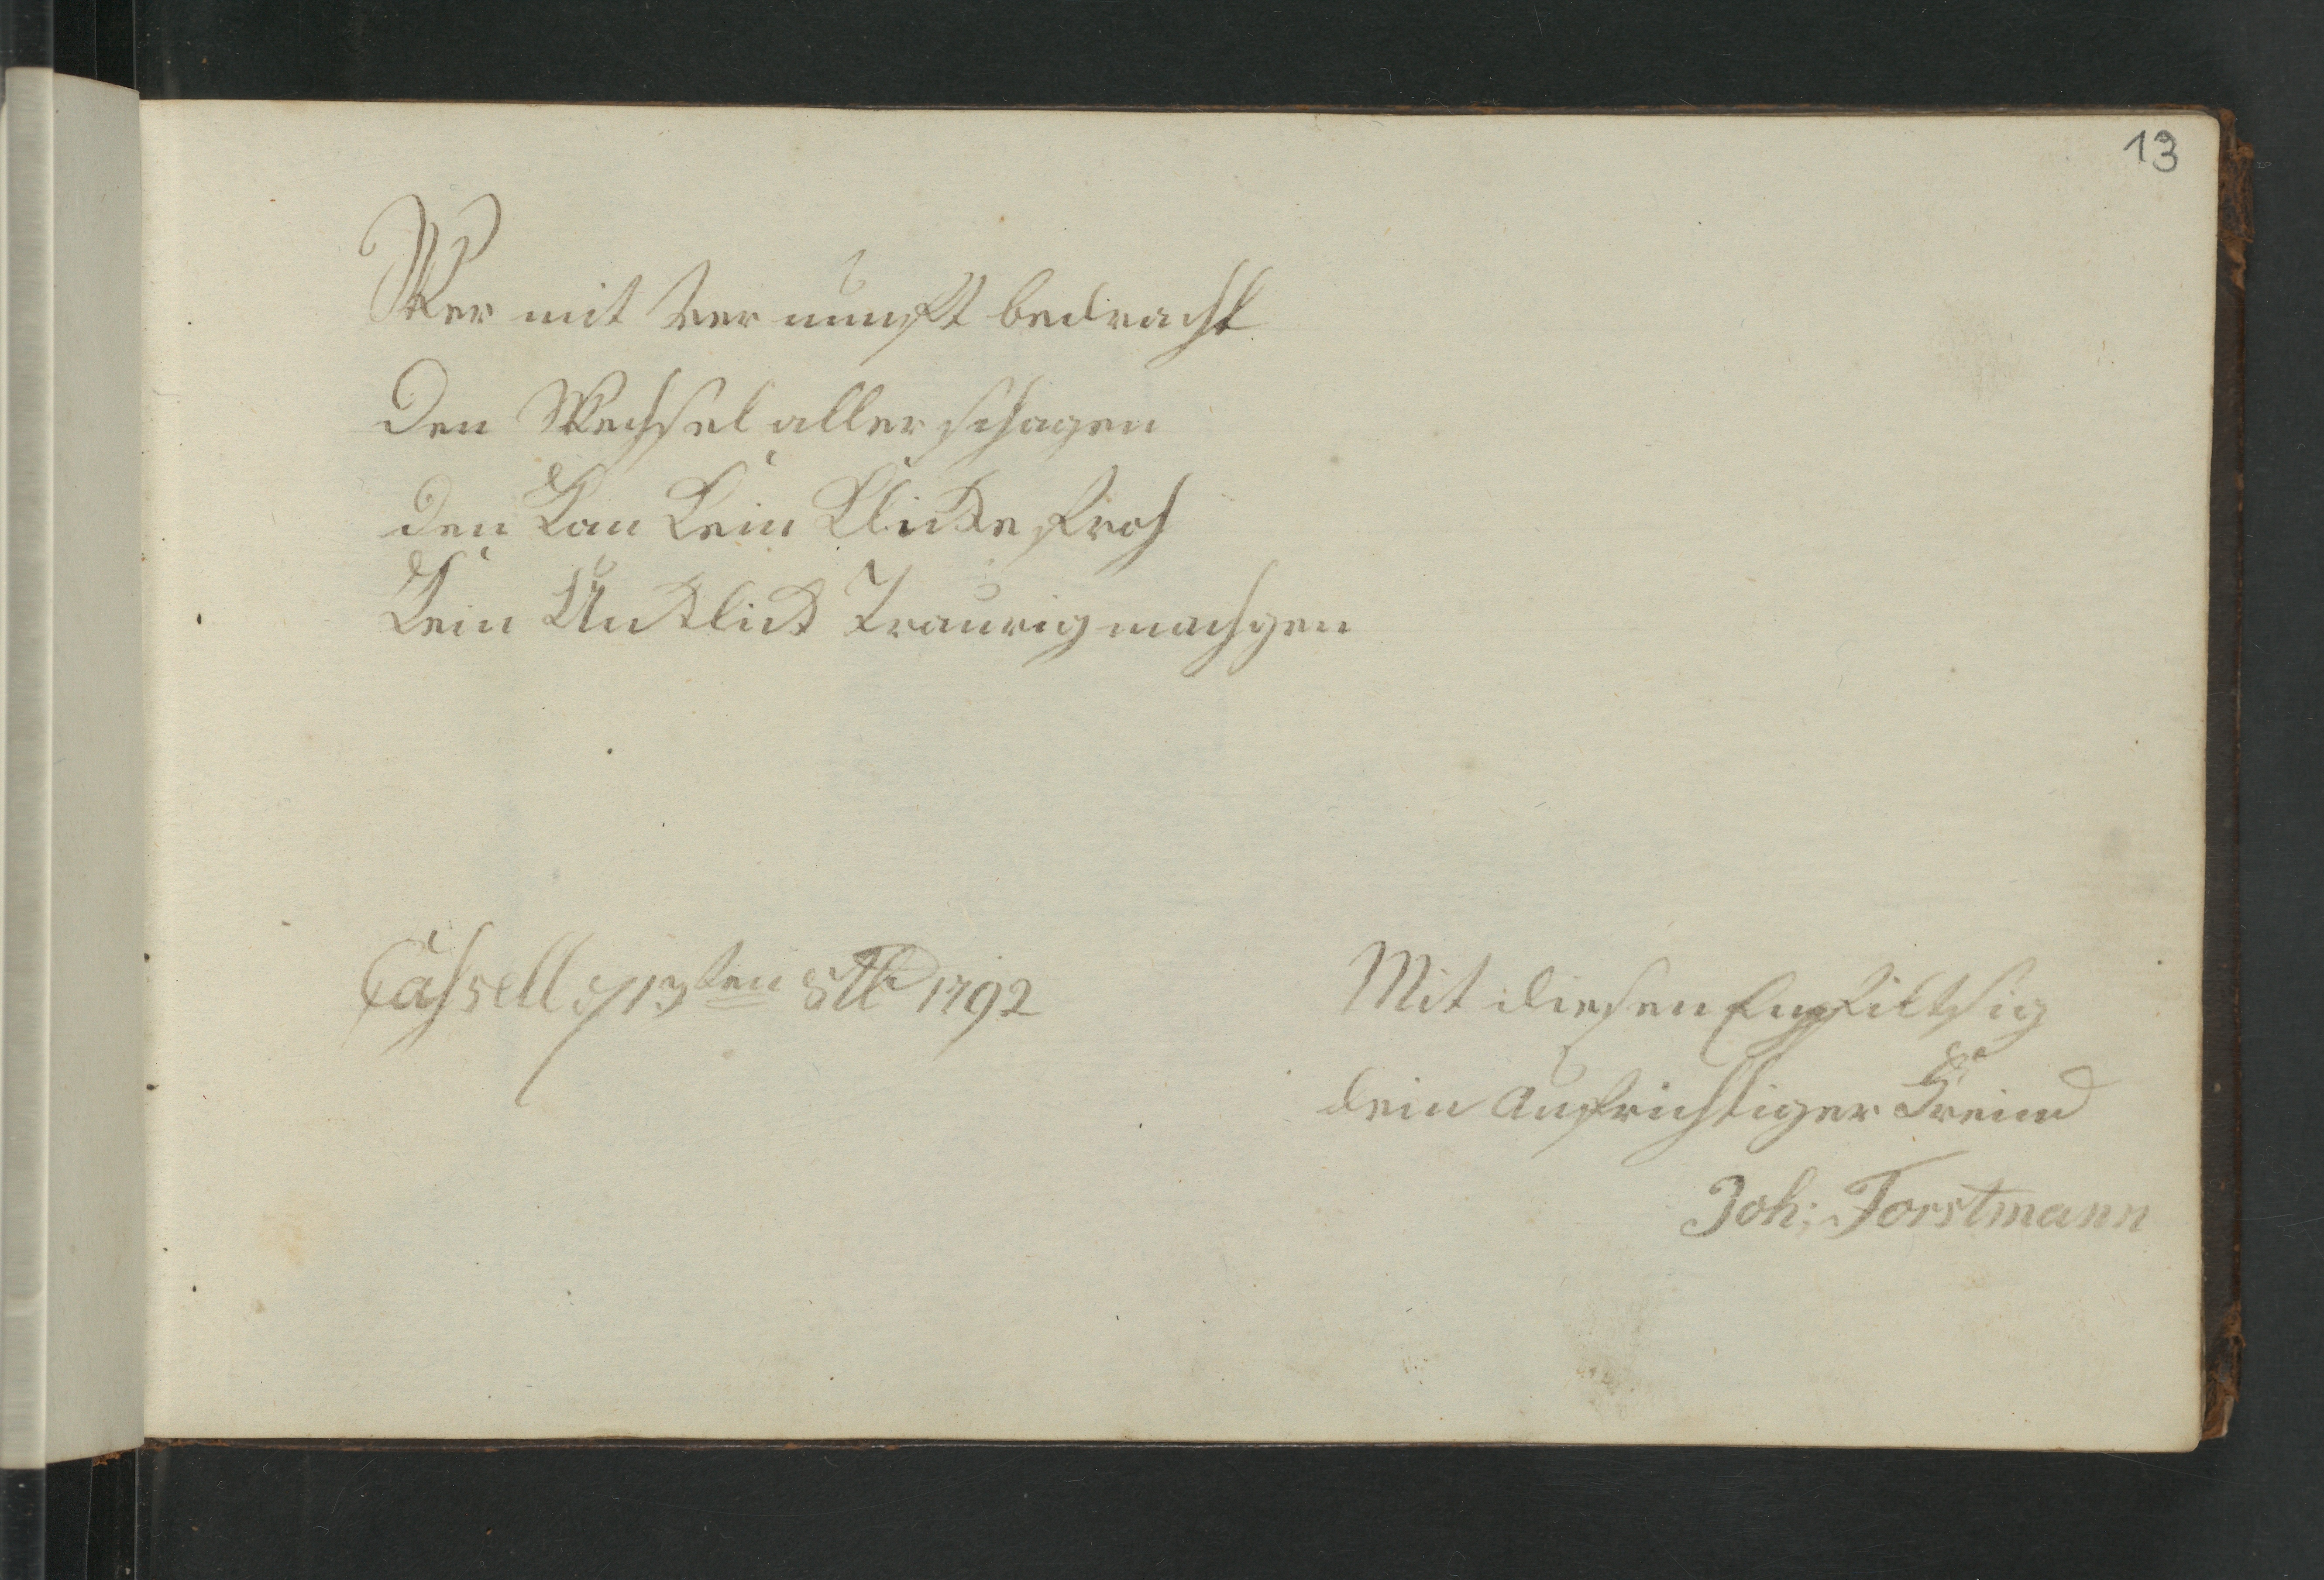 13
Wer mit Ver nunft bedracht
Den Wechsel aller schagen
den Kan Kein Klicke froh
Kein Unklick Traurig machgen
Cassell d 13ten 8tb 1792
Mit diesen Empfilt sig
dein Aufrichtiger Freind
Joh: Forstmann